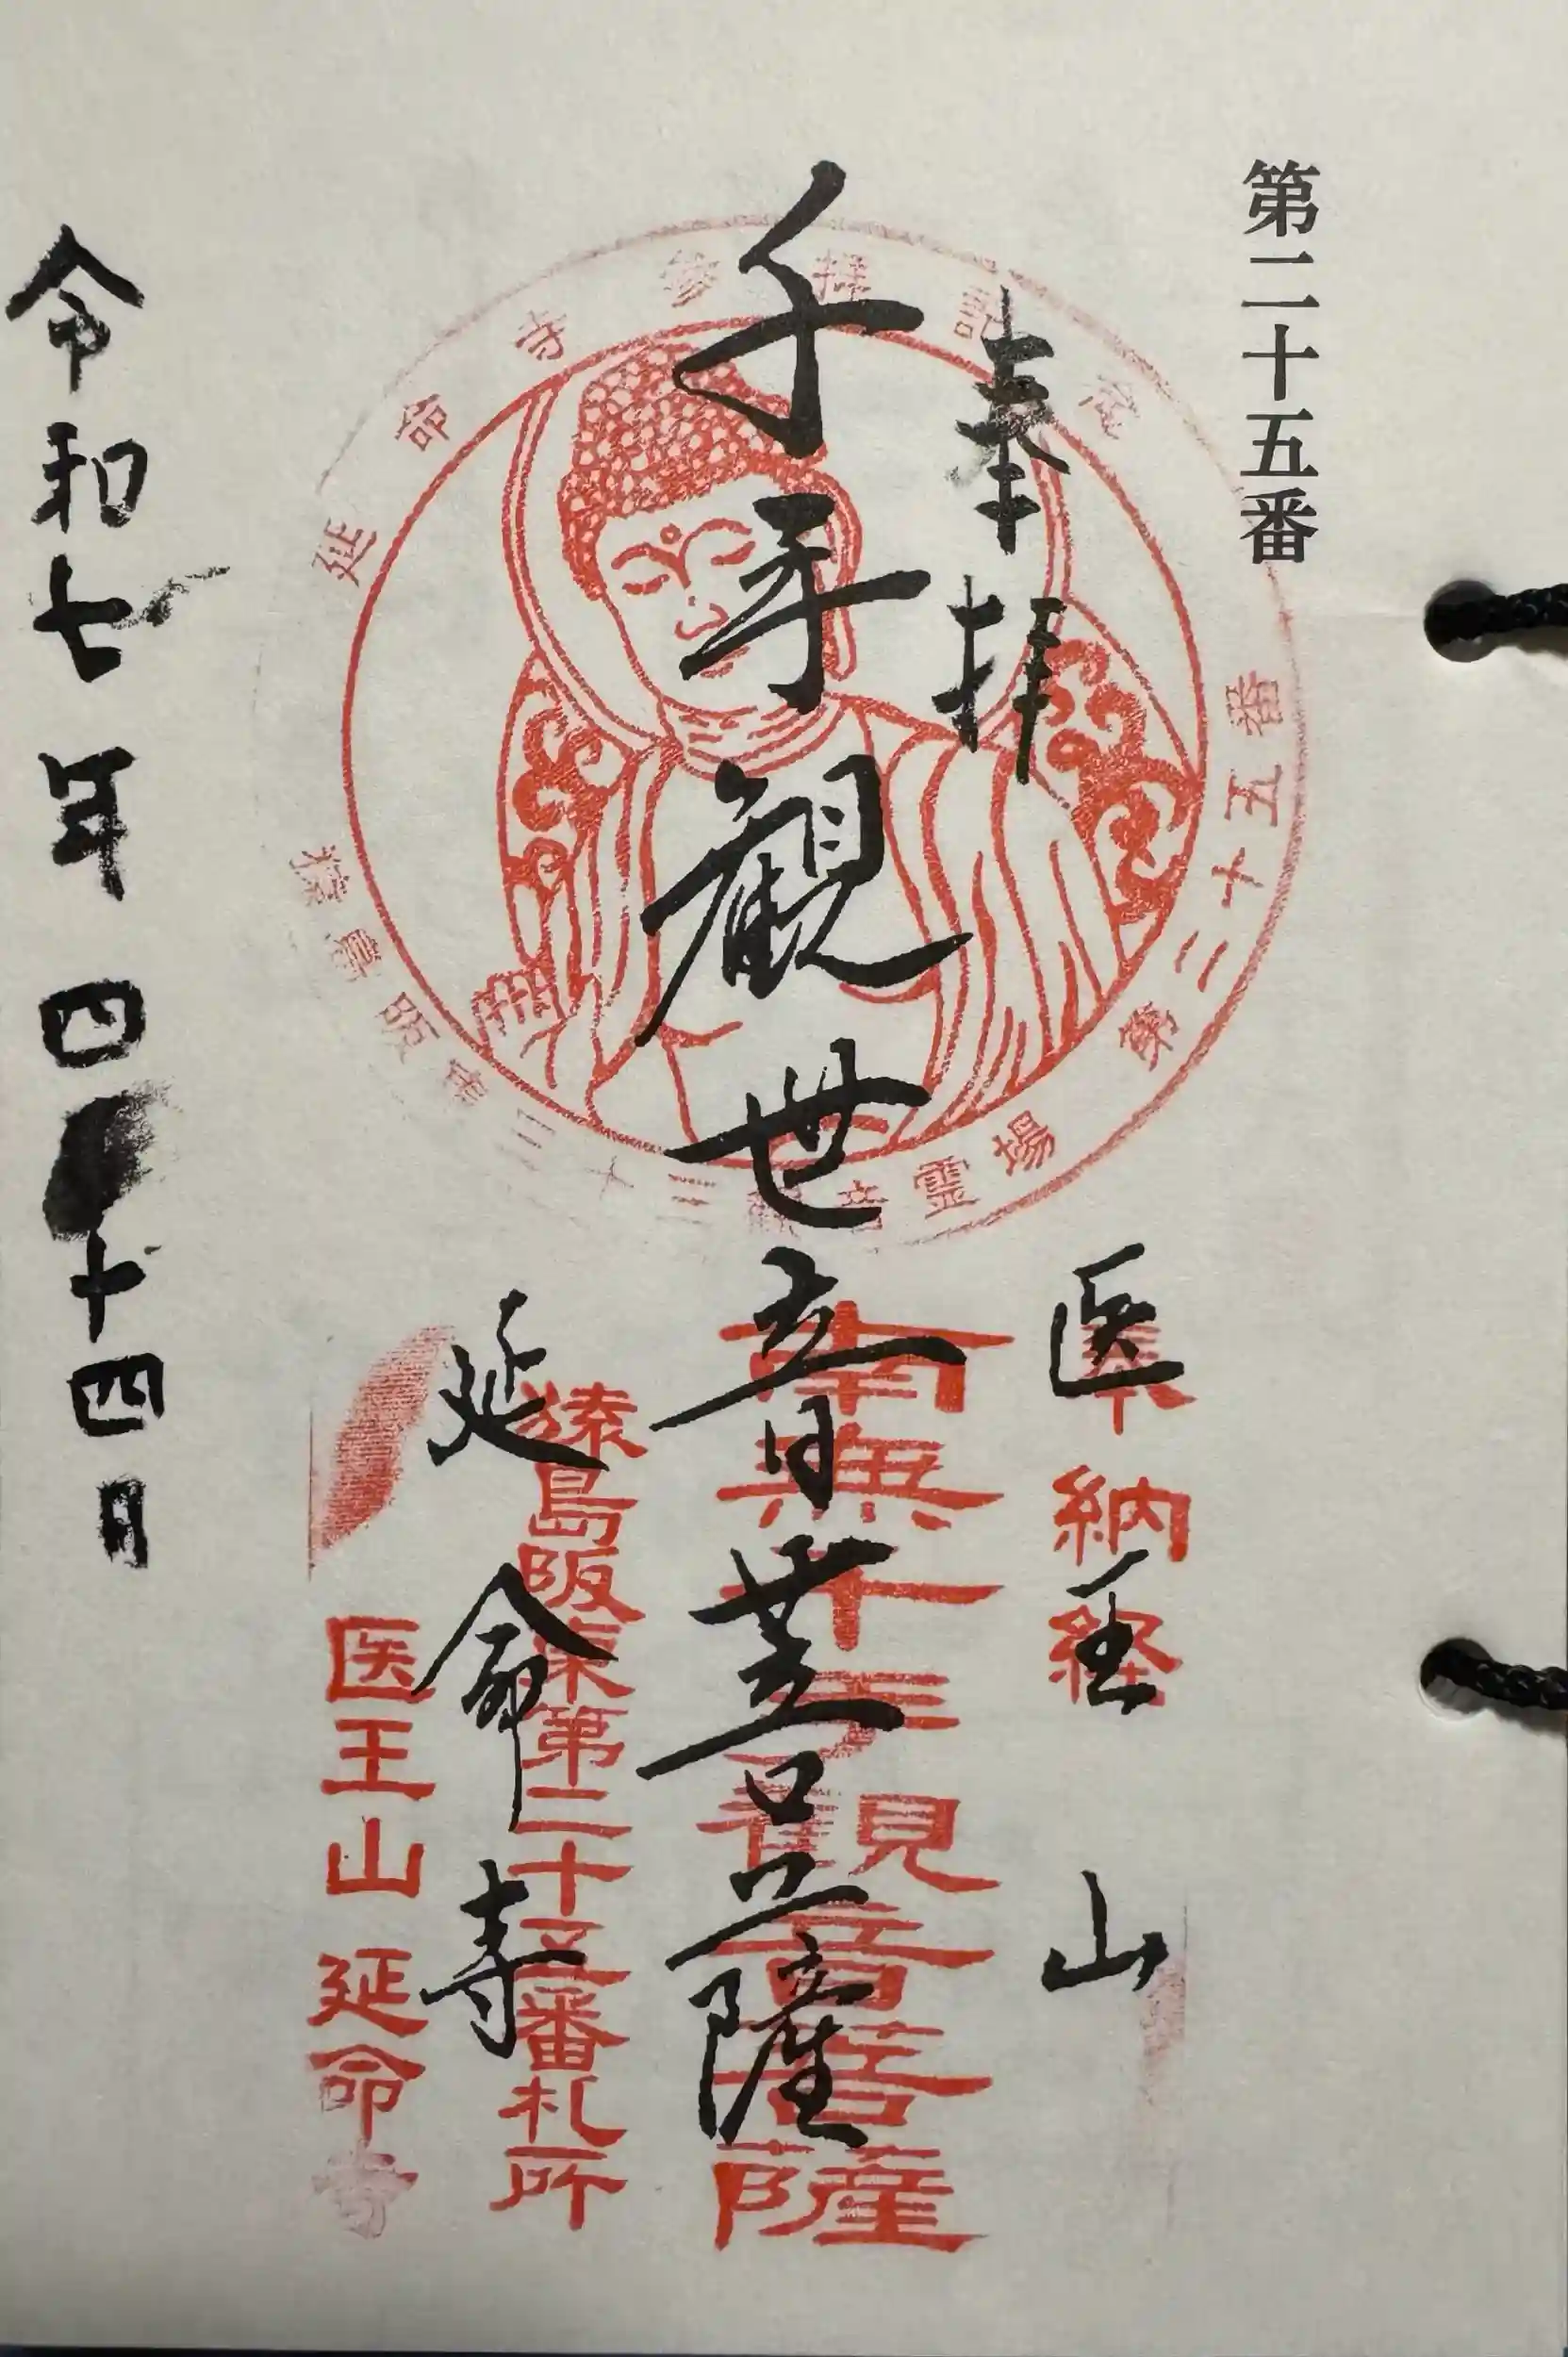 第二十五番
奉拝
医王山
奉納経
千手観世音菩薩
南無千手観音菩薩
延命寺
猿島阪東第二十五番札所
医王山 延命寺
令和七年四月十四日
延命寺参拝記念
猿島阪東三十三観音霊場 第二十五番